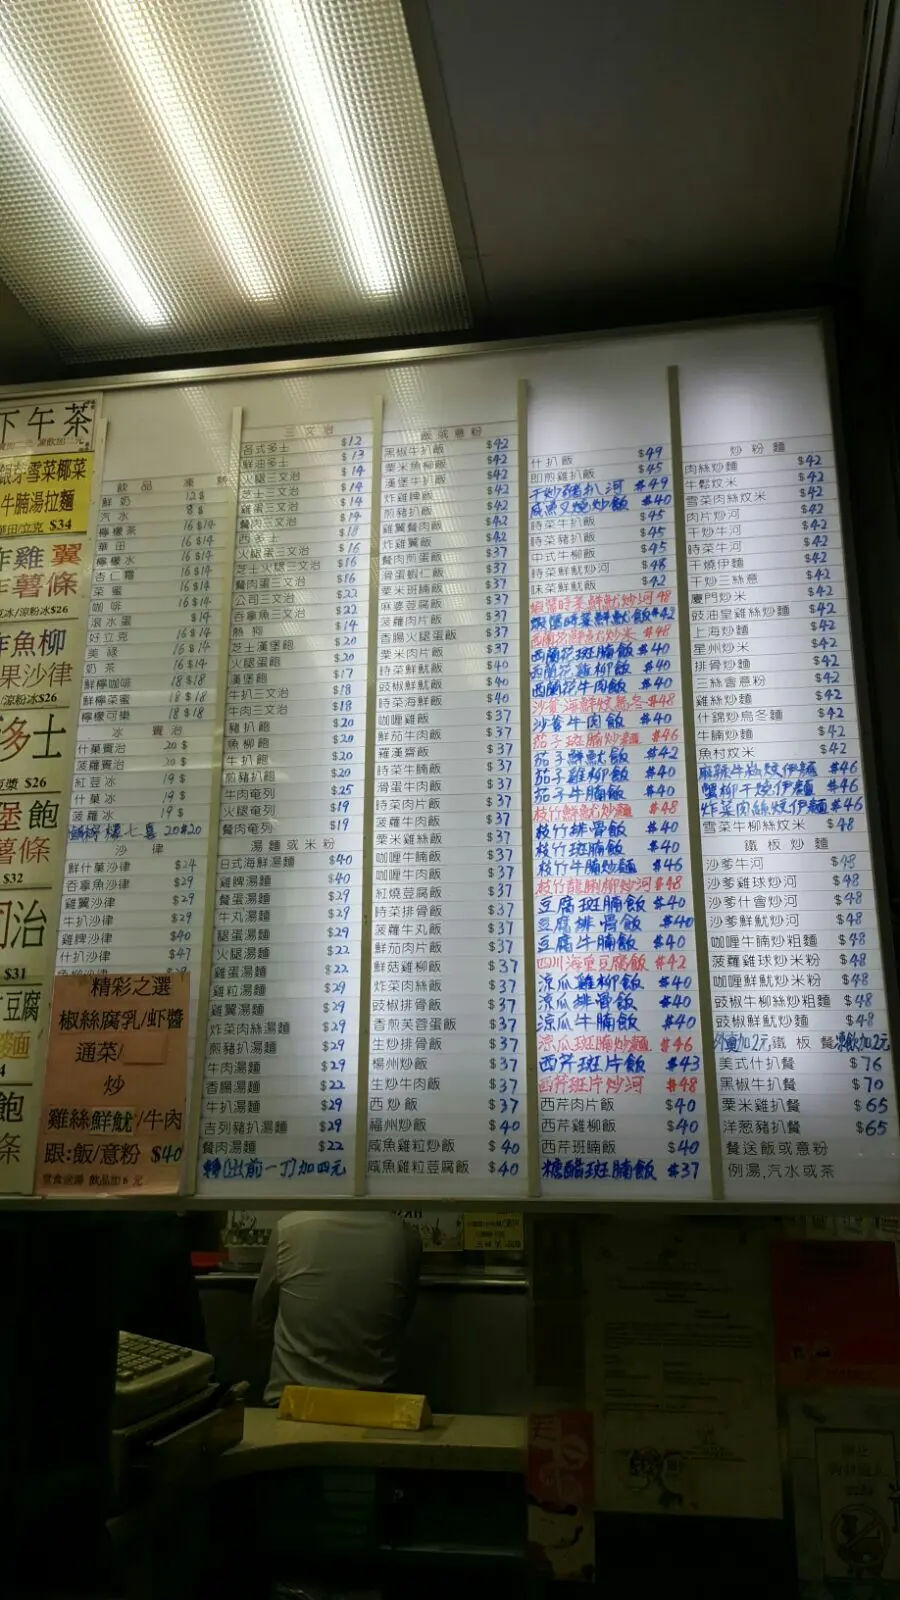 下午茶
銀芽雪菜椰菜
牛腩湯拉麵
$34
炸雞翼
薯條
魚柳
果沙律
多士
$26
堡飽
薯條
$32
治
$31
豆腐
飽
條
飲品 凍 熱
鮮奶 12$
汽水 8$
檸檬茶 16$14
華田 16$14
檸檬水 16$14
杏仁霜 16$14
菜蜜 16$14
咖啡 16$14
滾水蛋 $14
好立克 16$14
美祿 16$14
奶茶 16$14
鮮檸咖啡 18$18
鮮檸菜蜜 18$18
檸檬可樂 18$18
冰 賓治
什菓賓治 20$
菠蘿賓治 20$
紅荳冰 19$
什菓冰 19$
菠蘿冰 19$
沙律
鮮什菓沙律 $24
吞拿魚沙律 $29
雞翼沙律 $29
牛扒沙律 $29
雞脾沙律 $40
什扒沙律 $47
精彩之選
椒絲腐乳/蝦醬
通菜/
炒
雞絲鮮魷/牛肉
跟:飯/意粉 $40
三文治
各式多士 $12
鮮油多士 $13
火腿三文治 $14
芝士三文治 $14
雞蛋三文治 $14
餐肉三文治 $14
西多士 $18
火腿蛋三文治 $16
芝士火腿三文治 $16
餐肉蛋三文治 $16
公司三文治 $22
吞拿魚三文治 $22
熱狗 $14
芝士漢堡飽 $20
火腿蛋飽 $20
漢堡飽 $17
牛扒三文治 $18
牛肉三文治 $18
豬扒飽 $20
魚柳飽 $20
牛扒飽 $20
煎豬扒飽 $20
牛肉奄列 $25
火腿奄列 $19
餐肉奄列 $19
湯麵或米粉
日式海鮮湯麵 $40
雞脾湯麵 $40
餐蛋湯麵 $29
牛丸湯麵 $29
腿蛋湯麵 $29
火腿湯麵 $22
雞蛋湯麵 $22
雞粒湯麵 $29
雞翼湯麵 $29
炸菜肉絲湯麵 $29
煎豬扒湯麵 $29
牛肉湯麵 $29
香腸湯麵 $22
牛扒湯麵 $29
吉列豬扒湯麵 $29
餐肉湯麵 $22
轉(出前一丁)加四元
飯或意粉
黑椒牛扒飯 $42
栗米魚柳飯 $42
漢堡牛扒飯 $42
炸雞脾飯 $42
煎豬扒飯 $42
雞翼餐肉飯 $42
炸雞翼飯 $42
餐肉煎蛋飯 $37
滑蛋蝦仁飯 $37
栗米班腩飯 $37
麻婆荳腐飯 $37
菠蘿肉片飯 $37
香腸火腿蛋飯 $37
栗米肉片飯 $37
時菜鮮魷飯 $40
豉椒鮮魷飯 $40
時菜海鮮飯 $40
咖喱雞飯 $37
鮮茄牛肉飯 $37
羅漢齋飯 $37
時菜牛腩飯 $37
滑蛋牛肉飯 $37
時菜肉片飯 $37
菠蘿牛肉飯 $37
栗米雞絲飯 $37
咖喱牛腩飯 $37
咖喱牛肉飯 $37
紅燒荳腐飯 $37
時菜排骨飯 $37
菠蘿牛丸飯 $37
鮮茄肉片飯 $37
鮮菇雞柳飯 $37
炸菜肉絲飯 $37
豉椒排骨飯 $37
香煎芙蓉蛋飯 $37
生炒排骨飯 $37
楊州炒飯 $37
生炒牛肉飯 $37
西炒飯 $37
福州炒飯 $40
咸魚雞粒炒飯 $40
咸魚雞粒荳腐飯 $40
什扒飯 $49
即煎雞扒飯 $45
干炒豬扒河 $49
咸魚叉燒炒飯 $40
時菜牛扒飯 $45
時菜豬扒飯 $45
中式牛柳飯 $45
時菜鮮魷炒河 $48
味菜鮮魷飯 $42
蝦醬時菜鮮魷炒河 48
蝦醬時菜鮮魷飯 $42
西蘭花斑腩飯 $40
西蘭花雞柳飯 $40
西蘭花牛肉飯 $40
沙爹海鮮炆烏冬 $48
沙爹牛肉飯 $40
茄子斑腩炒麵 $46
茄子鮮魷飯 $42
茄子雞柳飯 $40
茄子牛腩飯 $40
枝竹鮮魷炒麵 $48
枝竹排骨飯 $40
枝竹斑腩飯 $40
枝竹牛腩炒麵 $46
枝竹龍脷柳炒河 $48
豆腐斑腩飯 $40
豆腐排骨飯 $40
豆腐牛腩飯 $40
四川海皇豆腐飯 $42
涼瓜雞柳飯 $40
涼瓜排骨飯 $40
涼瓜牛腩飯 $40
涼瓜斑腩炒麵 $46
西芹斑片飯 $43
西芹斑片炒河 $48
西芹肉片飯 $40
西芹雞柳飯 $40
西芹班腩飯 $40
糖醋斑腩飯 $37
炒粉麵
肉絲炒麵 $42
牛鬆炆米 $42
雪菜肉絲炆米 $42
肉片炒河 $42
干炒牛河 $42
時菜牛河 $42
干燒伊麵 $42
干炒三絲意 $42
廈門炒米 $42
豉油皇雞絲炒麵 $42
上海炒麵 $42
星州炒米 $42
排骨炒麵 $42
三絲會意粉 $42
雞絲炒麵 $42
什錦炒烏冬麵 $42
牛腩炒麵 $42
魚村炆米 $42
麻辣牛𦟌炆伊麵 $46
蟹柳干燒伊麵 $46
炸菜肉絲炆伊麵 $46
雪菜牛柳絲炆米 $48
鐵板炒麵
沙爹牛河 $48
沙爹雞球炒河 $48
沙爹什會炒河 $48
沙爹鮮魷炒河 $48
咖喱牛腩炒粗麵 $48
菠蘿雞球炒米粉 $48
咖喱鮮魷炒米粉 $48
豉椒牛柳絲炒粗麵 $48
豉椒鮮魷炒麵 $48
外賣加2元 鐵板餐 凍飲加2元
美式什扒餐 $76
黑椒牛扒餐 $70
栗米雞扒餐 $65
洋葱豬扒餐 $65
餐送飯或意粉
例湯,汽水或茶